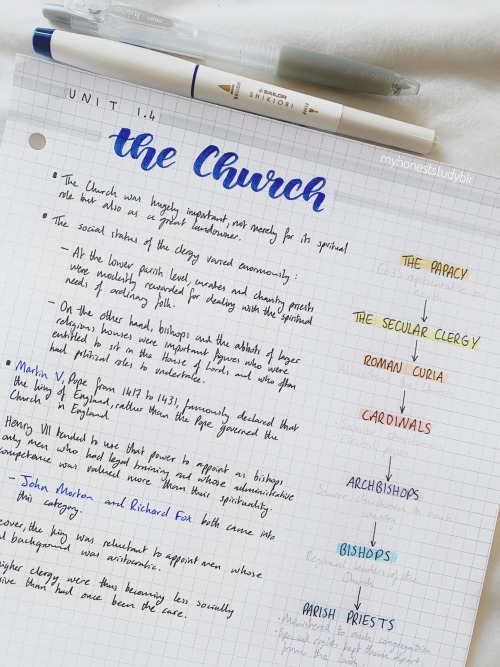 Juice
SAILOR
SHIKIORI
BRUSH
FINE
myhoneststudyblr
UNIT 1.4
the Church
• The Church was hugely important, not merely for its spiritual
role but also as a great landowner.
• The social status of the clergy varied enormously:
– At the lower parish level, curates and chantry priests
were modestly rewarded for dealing with the spiritual
needs of ordinary folk.
– On the other hand, bishops and the abbots of larger
religious houses were important figures who were
entitled to sit in the House of Lords and who often
had political roles to undertake.
• Martin V, Pope from 1417 to 1431, famously declared that
the king of England, rather than the Pope governed the
Church in England.
Henry VII tended to use that power to appoint as bishops
only men who had legal training and whose administrative
competence was valued more than their spirituality.
– John Morton and Richard Fox both came into
this category.
the king was reluctant to appoint men whose
background was aristocratic.
higher clergy were thus becoming less socially
than had once been the case.
THE PAPACY
God's
THE SECULAR CLERGY
ROMAN CURIA
CARDINALS
ARCHBISHOPS
BISHOPS
Regional leaders of the
Church
PARISH PRIESTS
• Ministered to each congregation
• Special rights kept them apart
from the laity